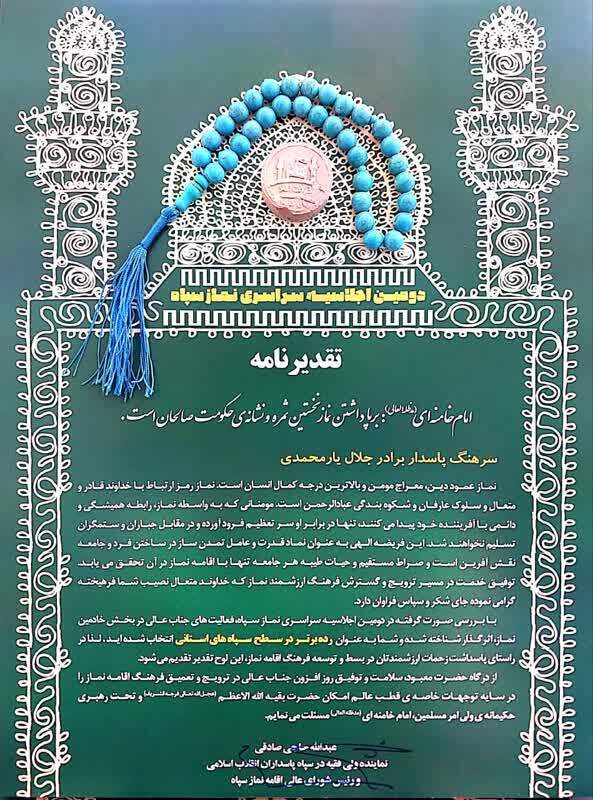 دومین اجلاسیه سراسری نماز سپاه
تقدیرنامه
امام خامنه ای (مدظله العالی): برپا داشتن نماز نخستین ثمره و نشانه ی حکومت صالحان است.
سرهنگ پاسدار برادر جلال یارمحمدی
نماز عمود دین، معراج مومن و بالاترین درجه کمال انسان است. نماز رمز ارتباط با خداوند قادر و
متعال و سلوک عارفان و شکوه بندگی عبادالرحمن است. مومنانی که به واسطه نماز، رابطه همیشگی و
دائمی با آفریننده خود پیدا می کنند، تنها در برابر او سر تعظیم فرود آورده و در مقابل جباران و ستمگران
تسلیم نخواهند شد. این فریضه الهی به عنوان نماد قدرت و عامل تمدن ساز در ساختن فرد و جامعه
نقش آفرین است و صراط مستقیم و حیات طیبه هر جامعه تنها با اقامه نماز در آن تحقق می یابد.
توفیق خدمت در مسیر ترویج و گسترش فرهنگ ارزشمند نماز که خداوند متعال نصیب شما فرهیخته
گرامی نموده جای شکر و سپاس فراوان دارد.
با بررسی صورت گرفته در دومین اجلاسیه سراسری نماز سپاه، فعالیت های جناب عالی در بخش خادمین
نماز، اثرگذار شناخته شده و شما به عنوان رده برتر در سطح سپاه های استانی انتخاب شده اید. لذا در
راستای پاسداشت زحمات ارزشمندتان در بسط و توسعه فرهنگ اقامه نماز، این لوح تقدیر تقدیم می شود.
از درگاه حضرت معبود، سلامت و توفیق روز افزون جناب عالی در ترویج و تعمیق فرهنگ اقامه نماز را
در سایه توجهات خاصه ی قطب عالم امکان حضرت بقیه الله الاعظم (عجل الله تعالی فرجه الشریف) و تحت رهبری
حکیمانه ی ولی امر مسلمین، امام خامنه ای (مدظله العالی) مسئلت می نمایم.
عبدالله حاجی صادقی
نماینده ولی فقیه در سپاه پاسداران انقلاب اسلامی
و رئیس شورای عالی اقامه نماز سپاه